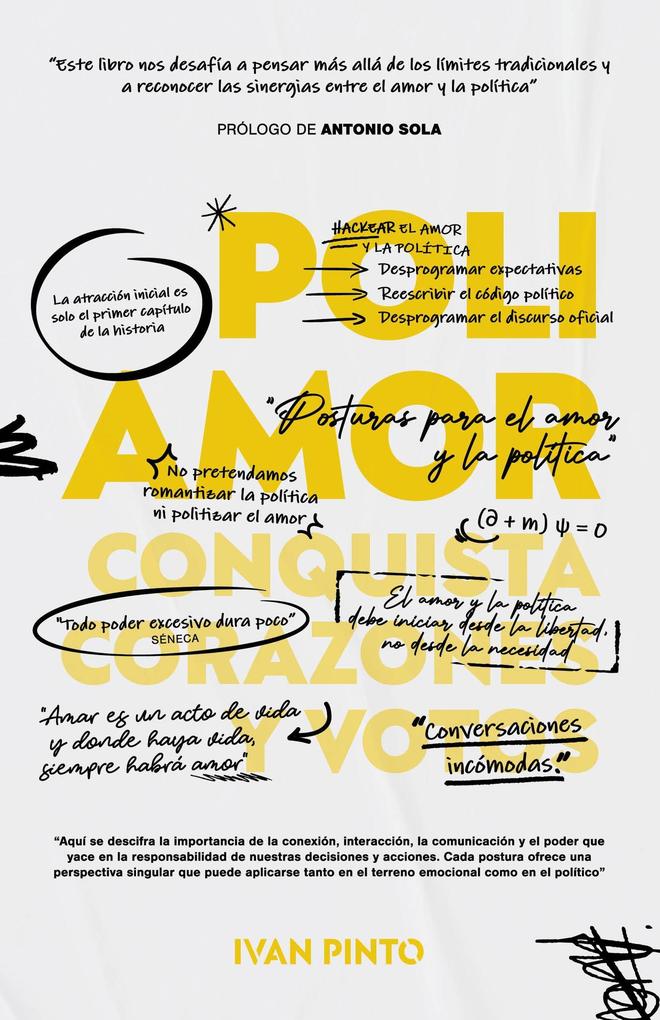 “Este libro nos desafía a pensar más allá de los límites tradicionales y
a reconocer las sinergias entre el amor y la política”
PRÓLOGO DE ANTONIO SOLA
POLI
HACKEAR EL AMOR
Y LA POLÍTICA
Desprogramar expectativas
Reescribir el código político
Desprogramar el discurso oficial
La atracción inicial es
solo el primer capítulo
de la historia
AMOR
“Posturas para el amor
y la política”
No pretendamos
romantizar la política
ni politizar el amor
(∂ + m) ψ = 0
CONQUISTA
"Todo poder excesivo dura poco"
SÉNECA
El amor y la política
debe iniciar desde la libertad,
no desde la necesidad
CORAZONES
Y VOTOS
"Amar es un acto de vida
y donde haya vida,
siempre habrá amor"
"Conversaciones
incómodas."
“Aquí se descifra la importancia de la conexión, interacción, la comunicación y el poder que
yace en la responsabilidad de nuestras decisiones y acciones. Cada postura ofrece una
perspectiva singular que puede aplicarse tanto en el terreno emocional como en el político”
IVAN PINTO